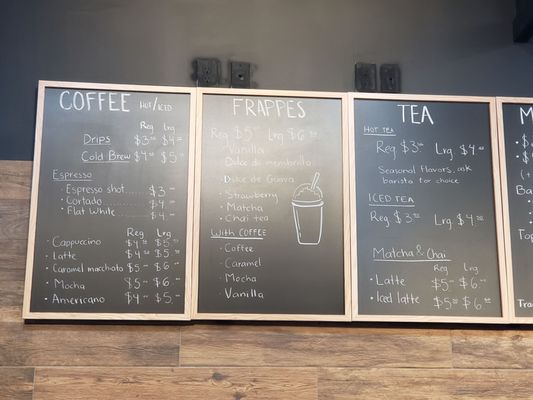 COFFEE HOT/ICED
Reg Lrg
Drips $3 $4
Cold Brew $4 $5
Espresso
· Espresso shot........ $3
· Cortado ........ $4
· Flat White ........ $4
Reg Lrg
· Cappucino $4 $5
· Latte $4 $5
· Caramel macchato $5 $6
· Mocha $5 $6
· Americano $4 $5
FRAPPES
Reg $5 Lrg $6
· Vanilla
· Dulce de membrillo
· Dulce de Guava
· Strawberry
· Matcha
· Chai tea
WITH COFFEE
· Coffee
· Caramel
· Mocha
· Vanilla
TEA
HOT TEA
Reg $3 Lrg $4
Seasonal Flavors, ask
barista for choice
ICED TEA
Reg $3 Lrg $4
Matcha & Chai
Reg Lrg
· Latte $5 $6
· Iced latte $5 $6